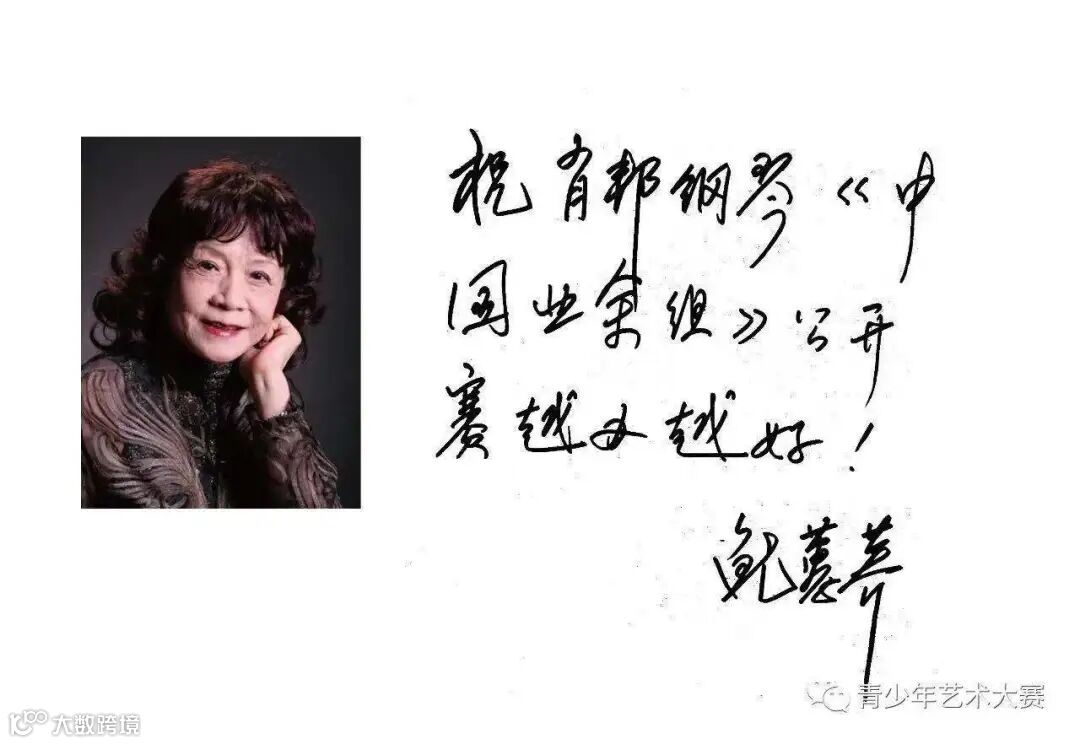 祝肖邦钢琴《中
国业余组》公开
赛越办越好！
鲍蕙荞
青少年艺术大赛
大数跨境